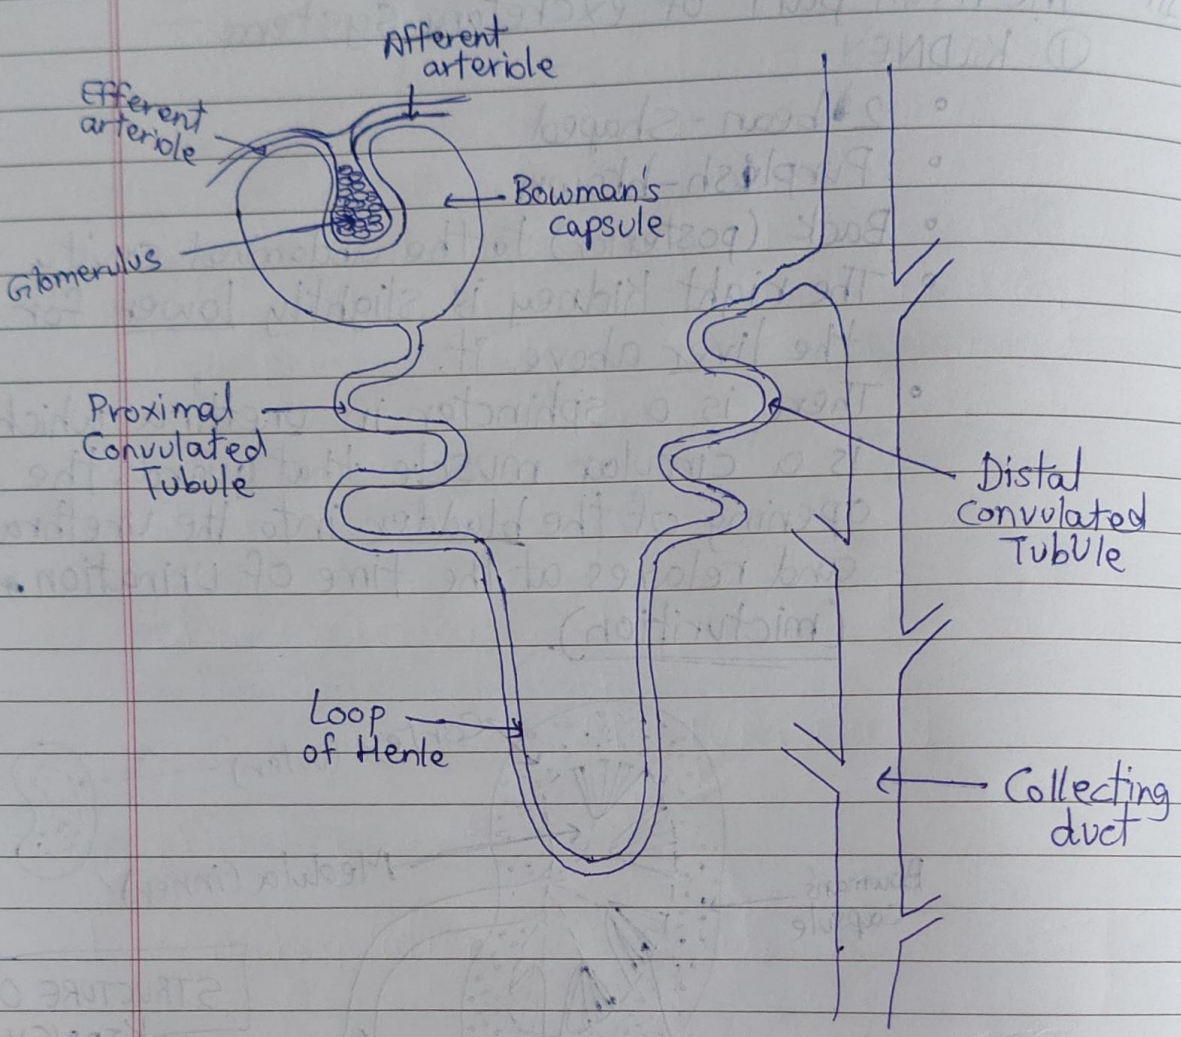 Afferent
arteriole
Efferent
arteriole
Bowman's
capsule
Glomerulus
Proximal
Convulated
Tubule
Distal
Convulated
TubUle
Loop
of Henle
Collecting
duct